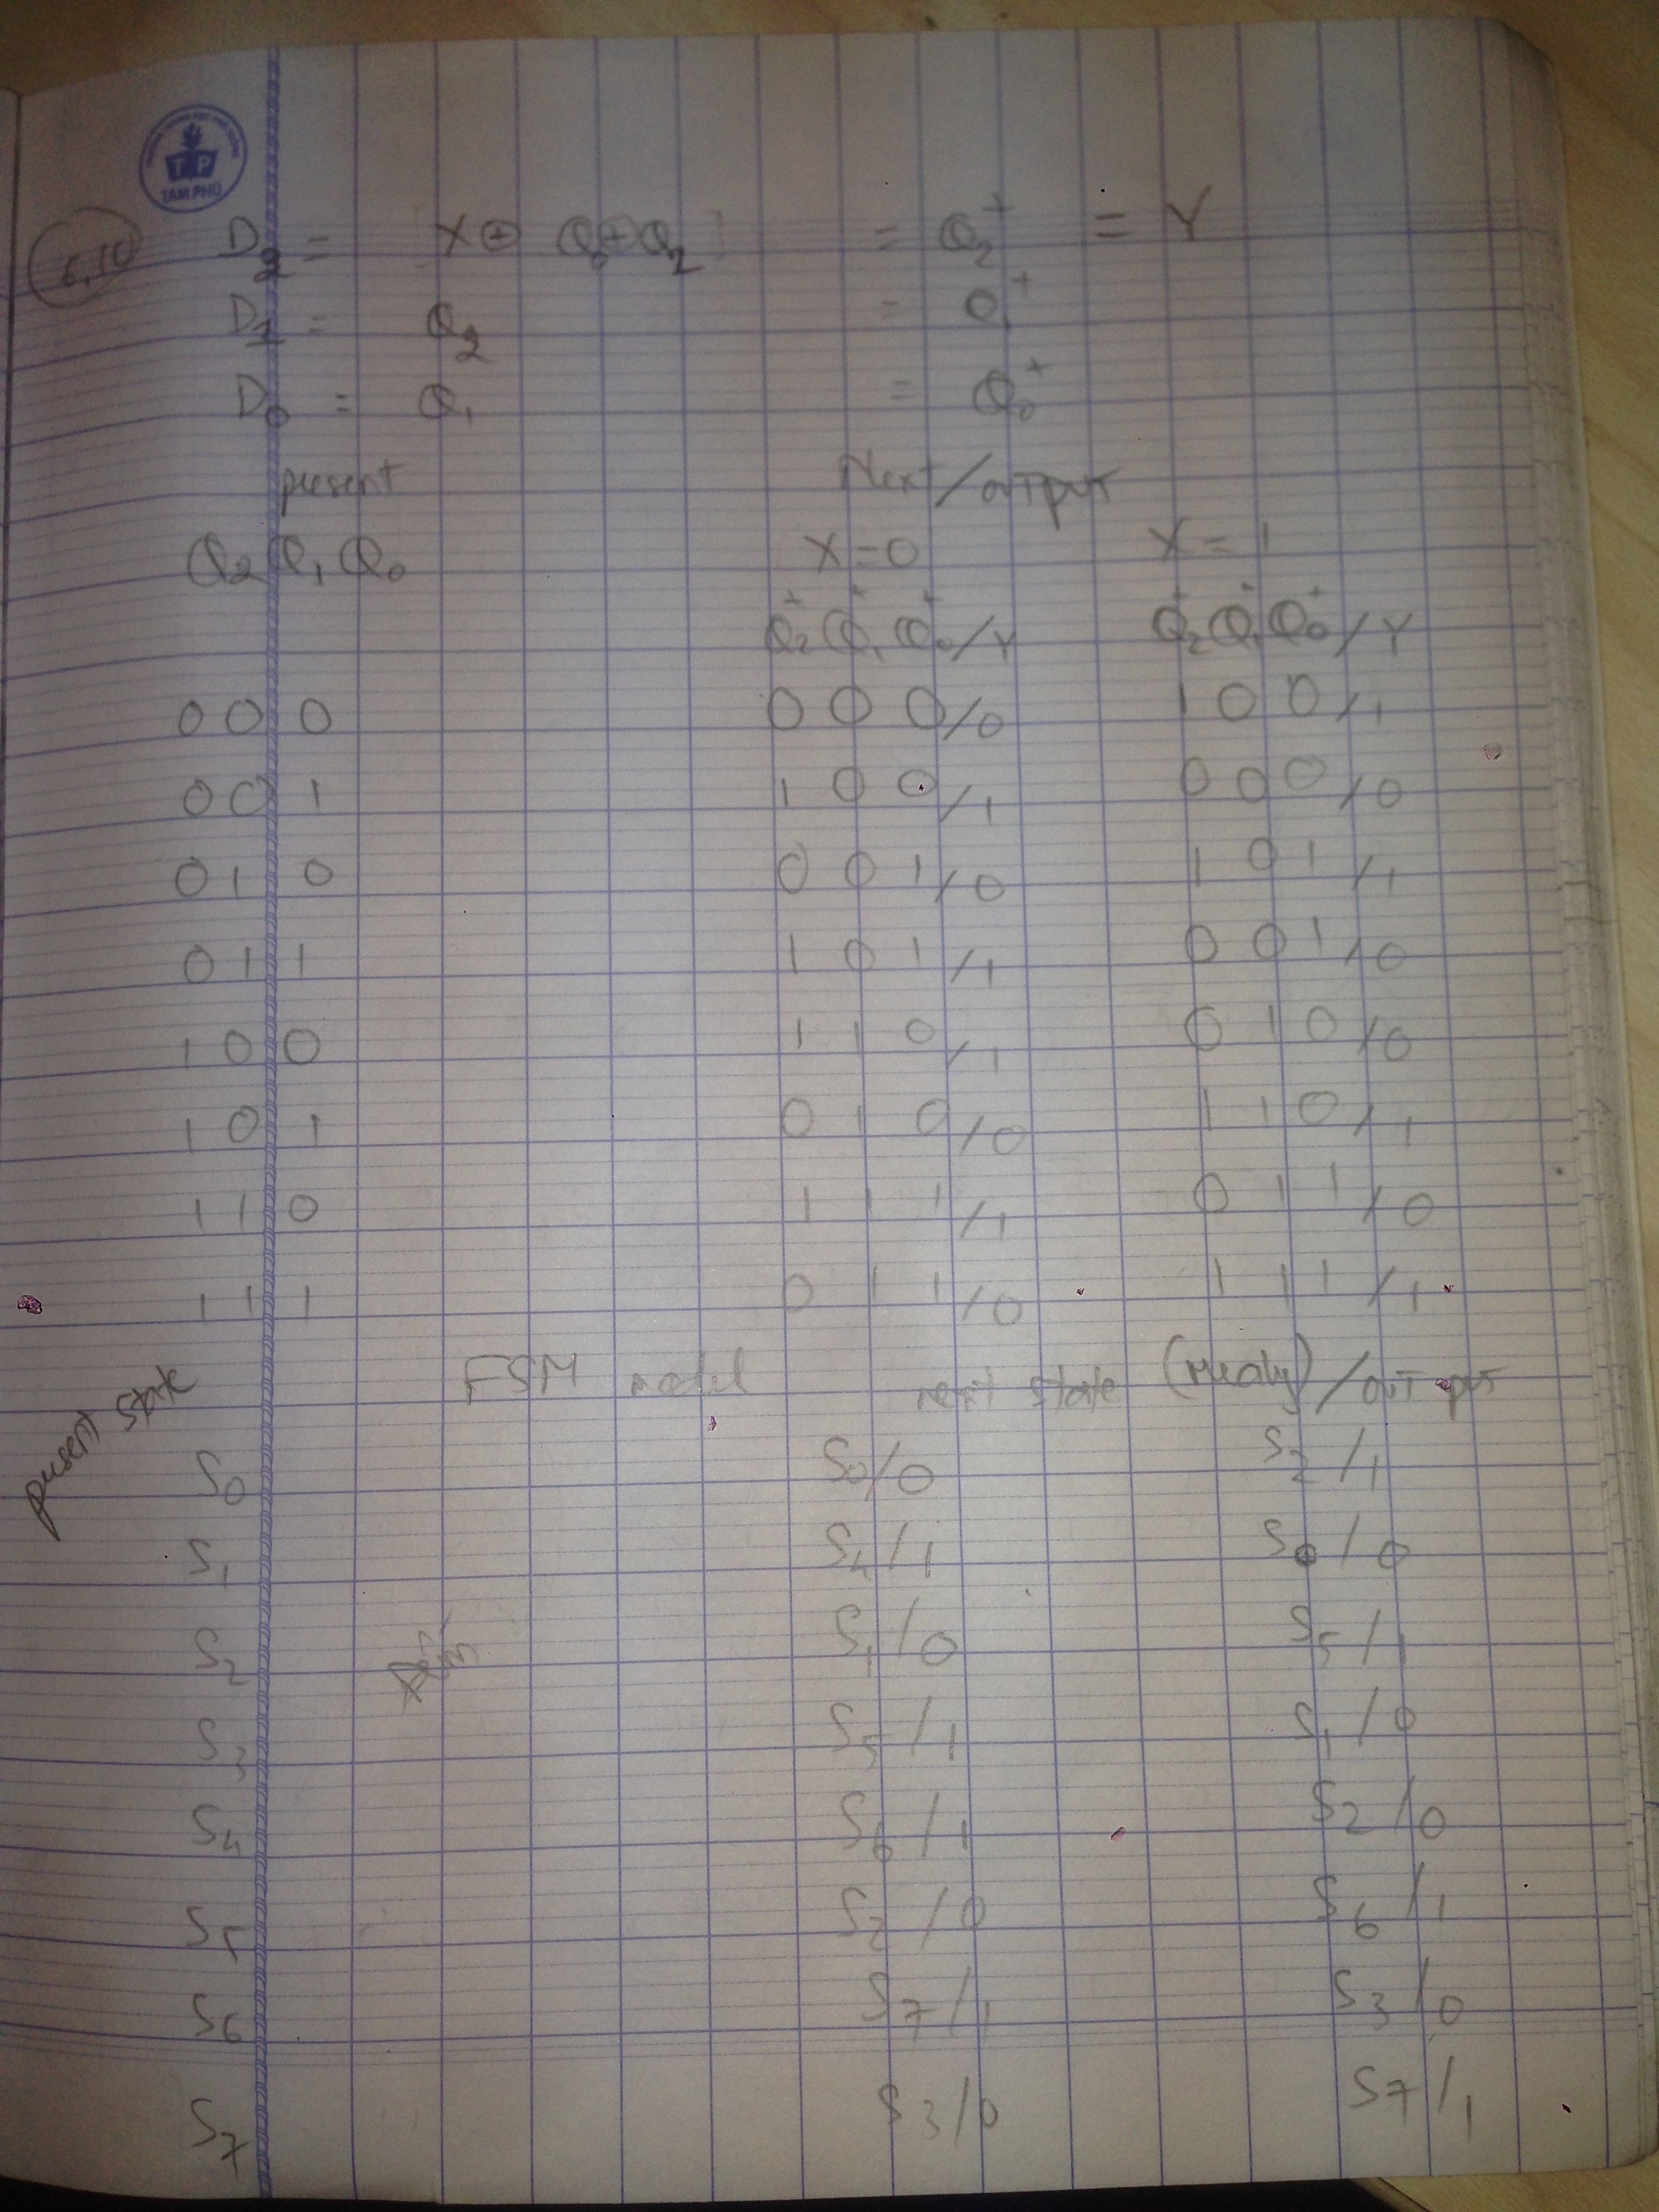 T P
TAM PHÚ
D2 = X ⊕ Q0 ⊕ Q2 = Q2+ = Y
D1 = Q2 = Q1+
D0 = Q1 = Q0+
present Next/output
Q2 Q1 Q0 X=0 X=1
Q2+ Q1+ Q0+/Y Q2+ Q1+ Q0+/Y
0 0 0 0 0 0/0 1 0 0/1
0 0 1 1 0 0/1 0 0 0/0
0 1 0 0 0 1/0 1 0 1/1
0 1 1 1 0 1/1 0 0 1/0
1 0 0 1 1 0/1 0 1 0/0
1 0 1 0 1 0/0 1 1 0/1
1 1 0 1 1 1/1 0 1 1/0
1 1 1 0 1 1/0 1 1 1/1
present state FSM model next state (mealy)/output
S0 S0/0 S2/1
S1 S4/1 S0/0
S2 S1/0 S5/1
S3 S5/1 S1/0
S4 S6/1 S2/0
S5 S2/0 S6/1
S6 S7/1 S3/0
S7 S3/0 S7/1